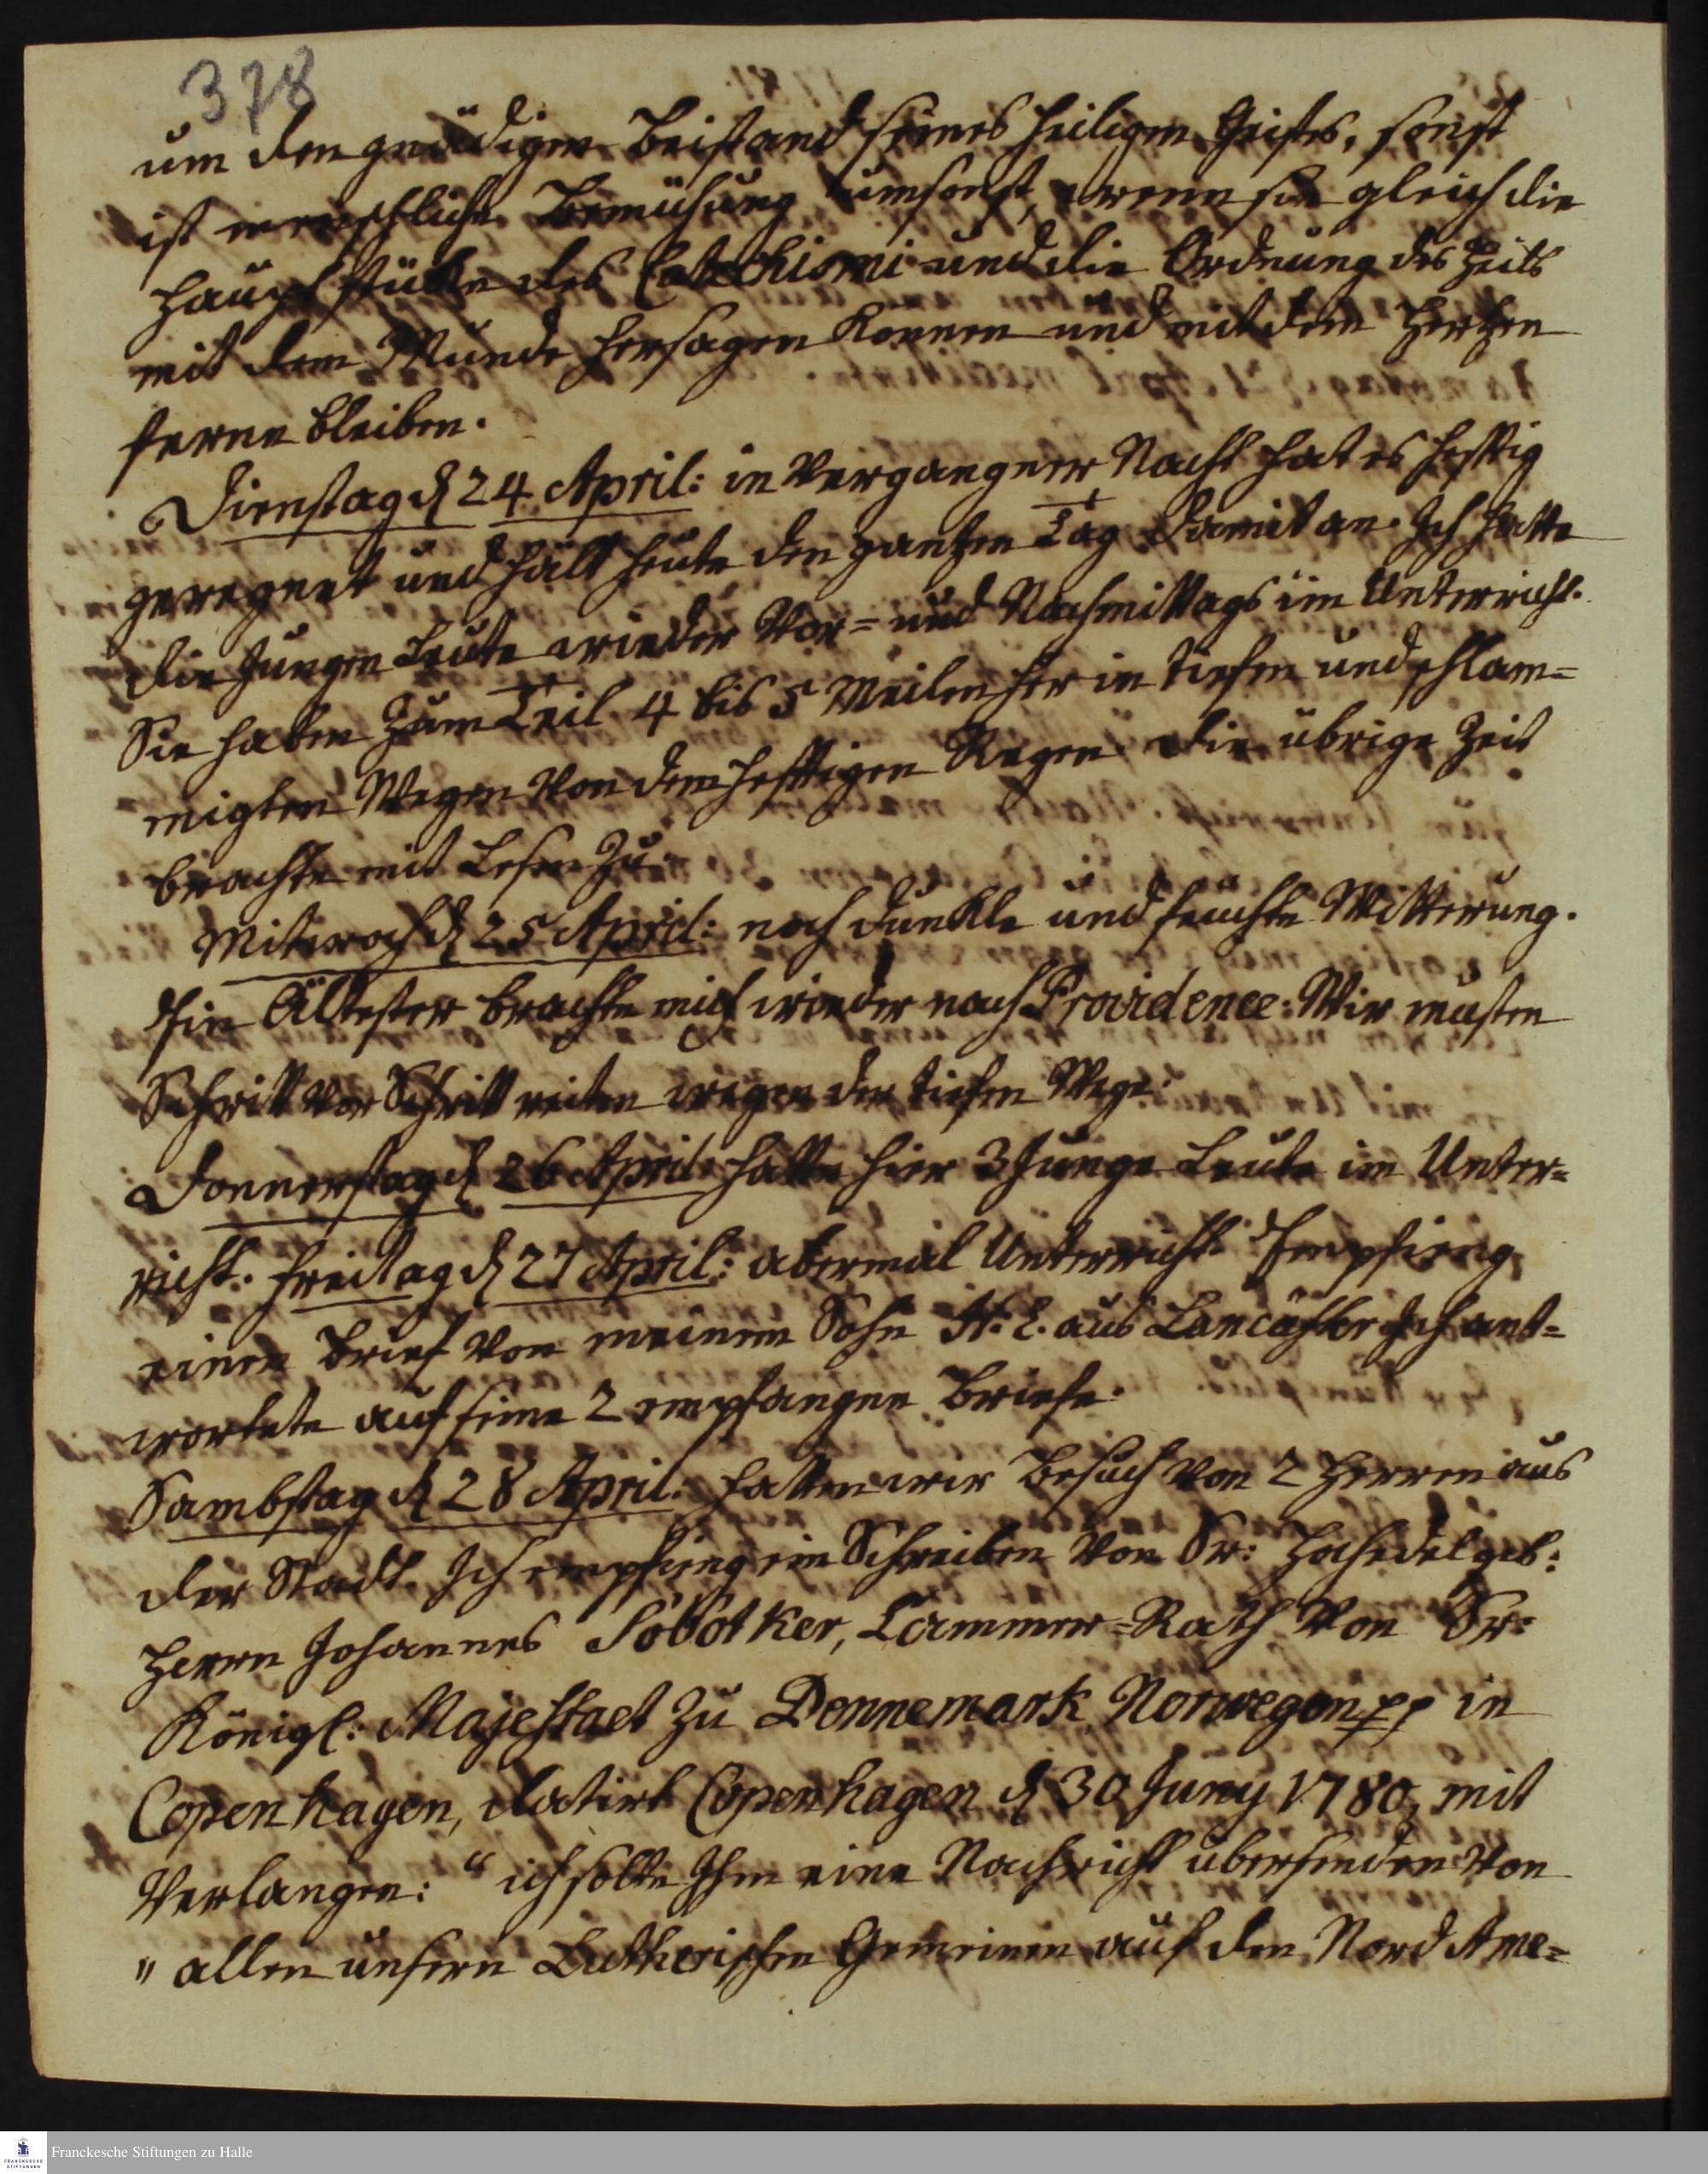 378
um den gnädigen Beistand seines heiligen Geistes, sonst
ist menschliche Bemühung umsonst, wenn sie gleich die
Hauptstücke des Catechismi und die Ordnung des Heils
mit dem Munde hersagen können und mit dem Hertzen
ferne bleiben.
Dienstag d 24 April: in vergangner Nacht hat es hefftig
geregnet und hält heute den gantzen Tag damit an. Ich hatte
die jungen Leute wieder Vor= und Nachmittags im Unterricht.
Sie haben zum Teil 4 bis 5 Meilen her in tiefen und schlam=
migten Wegen von dem hefftigen Regen. die übrige Zeit
brachte mit Lesen zu.
Mitwoch d 25 April: noch dunkle und feuchte Witterung.
Ein Ältester brachte mich wieder nach Providence: Wir musten
Schritt vor Schritt reiten wegen der tiefen Wege.
Donnerstag d 26 April: hatte hier 3 junge Leute im Unter=
richt. Freitag d 27 April: abermal Unterricht. Empfieng
einen Brief von meinem Sohn H: E. aus Lancäster Ich ant=
wortete auf seine 2 empfangne Briefe.
Sambstag d 28 April. hatten wir Besuch von 2 Herren aus
der Stadt. Ich empfieng ein Schreiben von Sr: Hochedelgeb:
Herrn Johannes Söbötker, Cammer=Rath von Sr:
Königl: Majestaet zu Dennemark Norwegen pp in
Copenhagen, datirt Copenhagen d 30 Juny 1780, mit
Verlangen: "ich solte Ihm eine Nachricht übersenden von
" allen unsern Lutherischen Gemeinen auf den Nord Ame=
Franckesche Stiftungen zu Halle
FRANCKESCHE
STIFTUNGEN